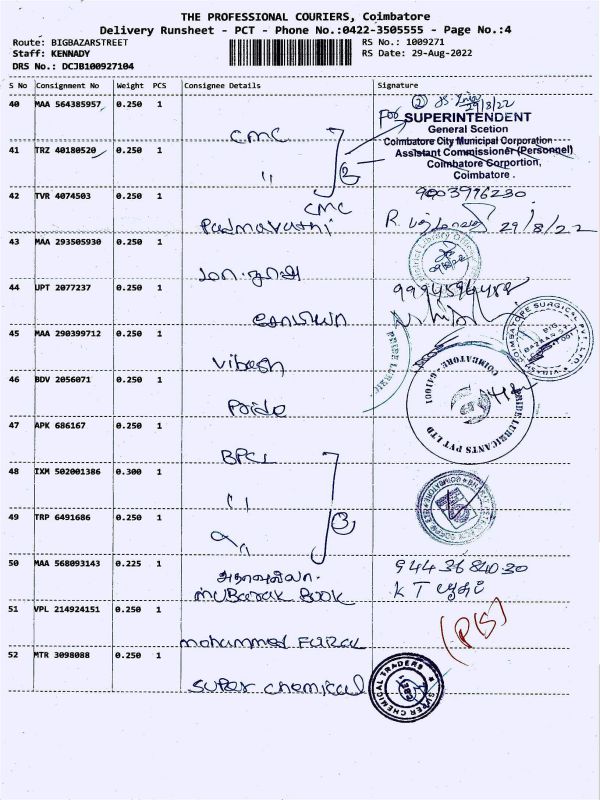 THE PROFESSIONAL COURIERS, Coimbatore
Delivery Runsheet - PCT - Phone No.:0422-3505555 - Page No.:4
Route: BIGBAZARSTREET
Staff: KENNADY
DRS No.: DCJB100927104
RS No.: 1009271
RS Date: 29-Aug-2022
S No Consignment No Weight PCS Consignee Details Signature
40 MAA 564385957 0.250 1 CMC
29/8/22
For SUPERINTENDENT
General Scetion
Coimbatore City Municipal Corporation
Assistant Commissioner (Personnel)
Coimbatore Corportion,
Coimbatore.
41 TRZ 40180520 0.250 1 "
2
42 TVR 4074503 0.250 1 CMC
Padmavathi
9003976230
29/8/22
43 MAA 293505930 0.250 1
District Library Officer
44 UPT 2077237 0.250 1
45 MAA 290399712 0.250 1 Vibash
COIMBATORE SURGICAL PVT. LTD.
PRIDE LUBRIC
46 BDV 2056071 0.250 1 Pride
PRIDE LUBRICANTS PVT LTD
COIMBATORE - 641001
47 APK 686167 0.250 1 BPCL
48 IXM 502001386 0.300 1 "
3
49 TRP 6491686 0.250 1
50 MAA 568093143 0.225 1
MUBARAK BOOK
9443684030
K T
51 VPL 214924151 0.250 1 Mohammed
(P15)
52 MTR 3098088 0.250 1 Super chemical
SUPER CHEMICAL TRADERS
CBE-1